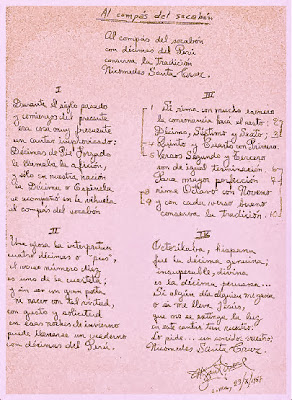 Al compás del socabón
Al compás del socabón
con décimas del Perú
conserva la Tradición
Nicomedes Santa Cruz.
I
Durante el siglo pasado
y comienzo del presente
era cosa muy
un cantar improvisado:
Décimas de Pie Forzado
le llamaba la afición,
y sólo en nuestra nación
la Décima o Espinela
se acompañó en la vihuela
al compás del socabón
II
Una glosa la interpretan
cuatro décimas o "pies",
el verso número diez
es uno de su cuarteta;
y sin ser un gran poeta
ni nacer con tal virtud,
con gusto y solicitud
en esas noches de invierno
puede llenarse un cuaderno
con décimas del Perú.
III
1 Si rima con mucho esmero
la consonancia hará el resto: 2
Décima, Séptimo y Sexto; 3
4 Quinto y Cuarto con Primero.
5 Versos Segundo y Tercero
son de igual terminación. 6
Para mayor perfección 7
8 rime Octavo con Noveno
9 y con cada verso bueno
conserva la Tradición. 10
IV
Octosílaba, hispana,
fue la décima genuina;
insuperable, divina
es la décima peruana...
Si algún día alguien me gana
o si me lleva Jesús,
que no se extinga la luz
en este cantar tan nuestro.
Lo pide... un servidor vuestro:
Nicomedes Santa Cruz.
Lima,